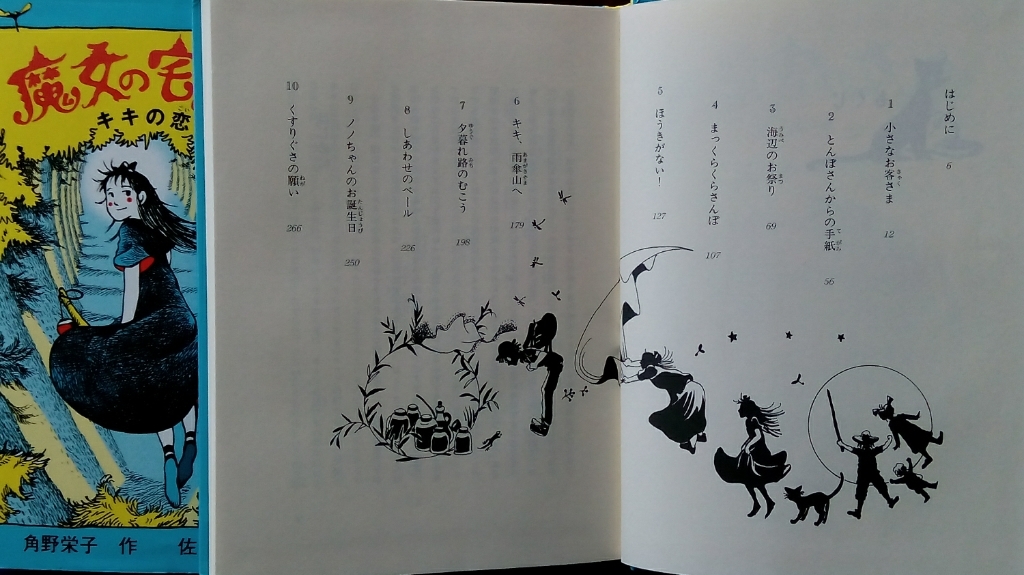 魔女の宅
キキの恋
角野栄子 作 佐
はじめに 6
1 小さなお客さま 12
2 とんぼさんからの手紙 56
3 海辺のお祭り 69
4 まっくらくらさんぽ 107
5 ほうきがない! 127
6 キキ、雨傘山へ 179
7 夕暮れ路のむこう 198
8 しあわせのベール 226
9 ノノちゃんのお誕生日 250
10 くすりぐさの願い 266